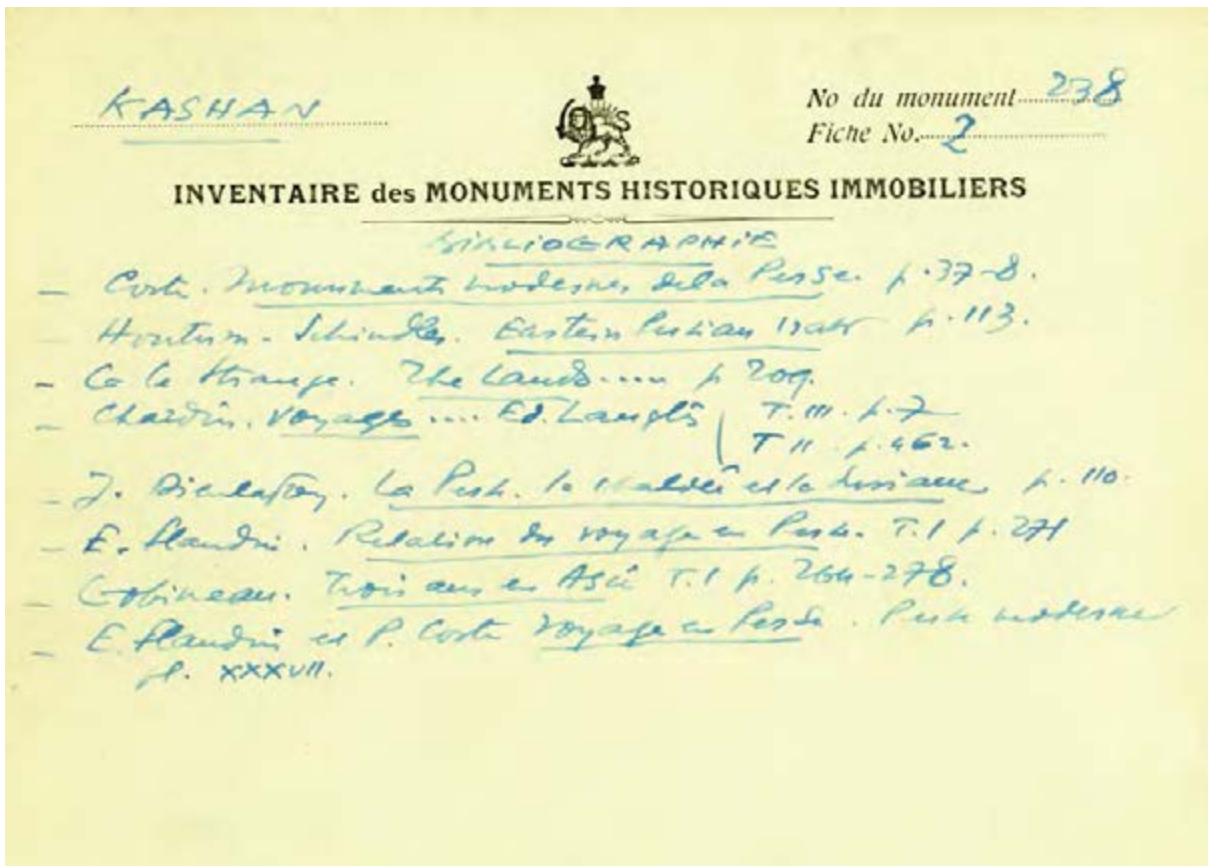 KASHAN
No du monument 238
Fiche No. 2
INVENTAIRE des MONUMENTS HISTORIQUES IMMOBILIERS
BIBLIOGRAPHIE
— Coste. Monuments modernes de la Perse. p. 37-8.
— Houtum-Schindler. Eastern Persian Irak p. 113.
— G. Le Strange. The Lands.... p 209.
— Chardin. Voyages .... Ed. Langlès T. III. p. 7
T II. p. 462.
— J. Dieulafoy. La Perse. la Chaldée et la Susiane p. 110.
— E. Flandin. Relation du voyage en Perse. T. I p. 271
— Gobineau. Trois ans en Asie T. I p. 264-278.
— E. Flandin et P. Coste Voyage en Perse. Perse moderne
pl. XXXVII.